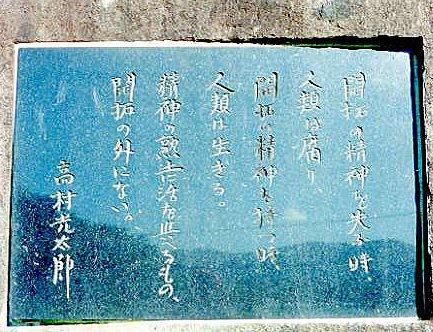 開拓の精神を失う時、
人類は腐り、
開拓の精神を持つ時、
人類は生きる。
精神の熱土に活を与へるもの、
開拓の外にない。
高村光太郎